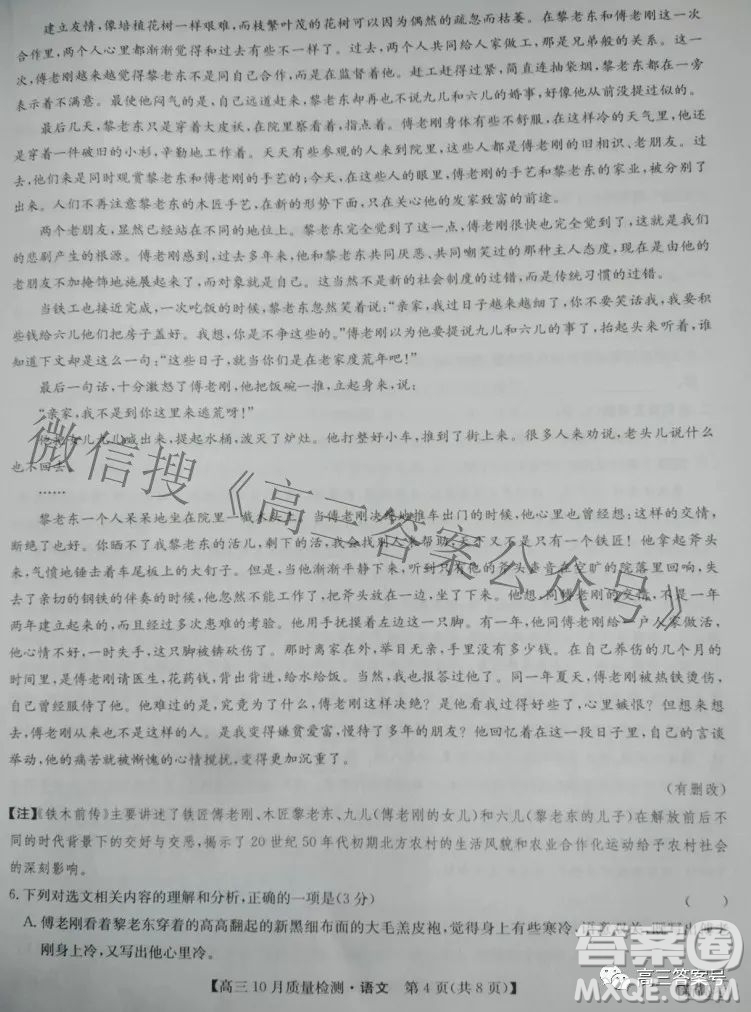 建立友情,像培植花树一样艰难,而枝繁叶茂的花树可以因为偶然的疏忽而枯萎。在黎老东和傅老刚这一次
合作里,两个人心里都渐渐觉得和过去有些不一样了。过去,两个人给人家做工,那是兄弟般的关系。这一
次,傅老刚越来越觉得黎老东不是同自己合作,而是在监督着他。赶工赶得过紧,简直连抽袋烟,黎老东都在一旁
表示着不满意。最使他闷气的是,自己远道赶来,黎老东却再也不说九儿和六儿的婚事,好像他从前没提过似的。
最后几天,黎老东只是穿着大皮袄,在院里察看着,指点着。傅老刚身体有些不舒服,在这样冷的天气里,他
还是穿着一件破旧的小衫,辛勤地工作着。天天有些参观的人来到院里,这些人也都是他们的旧相识、老朋友。过
去,他们时时刻刻观赏黎老东和傅老刚的手艺的;今天,在这些人的眼里,傅老刚的手艺和黎老东的家业,被分别了
出来。人们不再注意黎老东的木匠手艺,在新的形势下面,只在关心他的发家致富的前途。
两个老朋友,显然已经站在不同的地位上。黎老东完全觉到了这一点,傅老刚很快也完全觉到了,这是我们
的悲剧产生的根源。傅老刚感觉到,过去多年来,他和黎老东共同厌恶、共同嘲笑过的那种主人态度,现在由他的
老朋友不加掩饰地施展了出来,而对象就是自己。这当然不是新的社会制度的过错,而是传统习惯的过错。
当铁工也接近完成,一次吃饭的时候,黎老东忽然笑着说:“亲家,我过日子越来越细了,你不要笑话我,我要积
些钱给六儿他们把房子盖好。我想,你是不争这些的。”傅老刚以为他要提说九儿和六儿的事了,抬起头来听,谁
知道下文却是这么一句:“这些日子,就当你们是在老家度荒年吧!”
最后一句话,十分激怒了傅老刚,他把饭碗一推,立起身来,说:
“亲家,我不是到你这里来逃荒呀!”
他把女儿九儿喊出来,提起水桶,泼灭了炉灶。他整整好小车,推到了街上来。很多人来劝说,老头儿说什么
也不回去。
……
黎老东一个人呆呆地坐在院里一截木头上。当傅老刚决绝地推车出门的时候,他心里也曾经想:这样的交情,
断绝了也好。你晒不了我黎老东的活儿,剩下的活,我会找别人来帮助,天下又不是只有你一个铁匠!他拿起斧头
来,气愤地锤击着车尾板上的大钉子。当他渐渐平静下来,听到只有他的斧头声音在空旷的院落里回响,失
去了亲切的钢铁的伴奏的时候,他忽然不能工作了,把斧头放在了一边。他想,同傅老刚的交情,不是一年
两年建立起来的,而是经过多次患难的考验。他用手抚摸着左边这一只脚。有一年,他同傅老刚给一户人家做活,
他心情不好,一时失手,这只脚被锛砍伤了。那时他光棍一个,手里没有多少钱。在自己养伤的几个月的
时间里,是傅老刚请医生,花药钱,背出背进,给水给饭。当然,我也报答过他了。同一年夏天,傅老刚被热铁烫伤,
我也侍候了他。他难过的是,究竟为了什么,傅老刚这样决绝?是他看我过得好些了,心里嫉恨?但想来想
去,傅老刚从来也不是这样的人。是我变得嫌贫爱富,慢待了多年的朋友?他回想着在这一段日子里,自己的言谈
举动,他的痛苦就被惭愧的心情搅扰,变得更加沉重了。
(有删改)
【注】《铁木前传》主要讲述了铁匠傅老刚、木匠黎老东、九儿(傅老刚的女儿)和六儿(黎老东的儿子)在解放前后不
同的时代背景下的交好与交恶,揭示了20世纪50年代初期北方农村的生活风貌和农业合作化运动给予农村社会
的深刻影响。
6.下列对选文相关内容的理解和分析,正确的一项是(3分) ( )
A.傅老刚看着黎老东穿着的高高翻起的新黑细布面的大毛羔皮袍,觉得身上有些寒冷,
刚身上冷,又写出他心里冷。
【高三10月质量检测·语文 第4页(共8页)】
微信搜《高三答案公众号》
答案圈
高三答案号